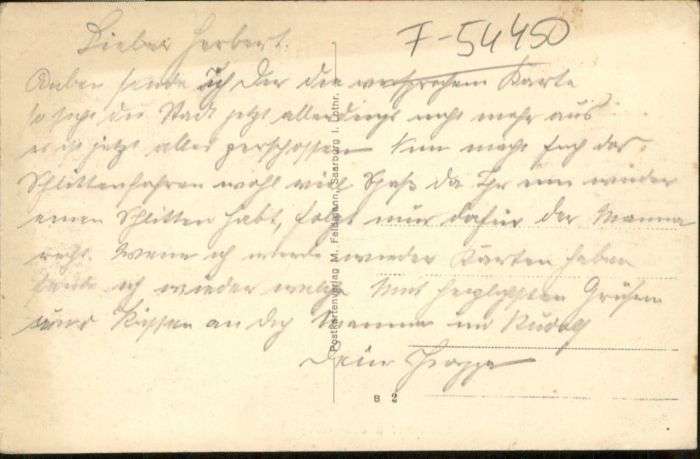 Lieber Herbert.
F-54450
Anbei sende ich Dir die versprochene Karte
so sieht die Stadt jetzt allerdings nicht mehr aus
es ist jetzt alles zerschossen. Nun macht Euch das
Schlittenfahren wohl viel Spaß da Ihr nun wieder
einen Schlitten habt, folgt nur dafür der Mamma
recht. Wenn ich werde wieder Karten haben
sende ich wieder welche. Mit herzlichsten Grüßen
und Küssen an dich Mamma und Rudolf
Dein
Postkartenverlag M. Feldmann, Saarburg i. Lothr.
B 2